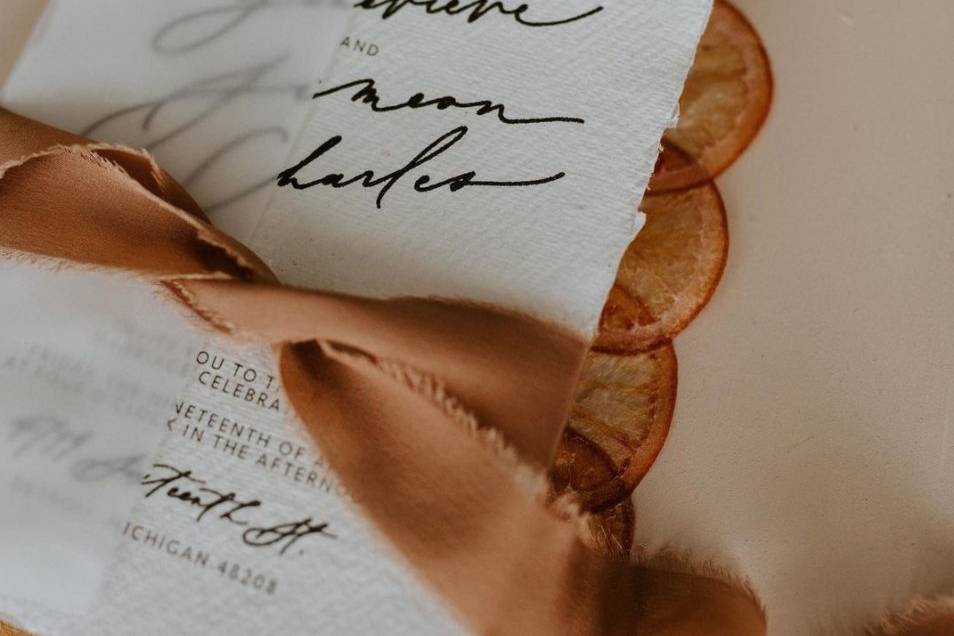 evieve
AND
meon
harles
OU TO T
CELEBRA
NETEENTH OF A
K IN THE AFTERNO
teenth St.
ICHIGAN 48208